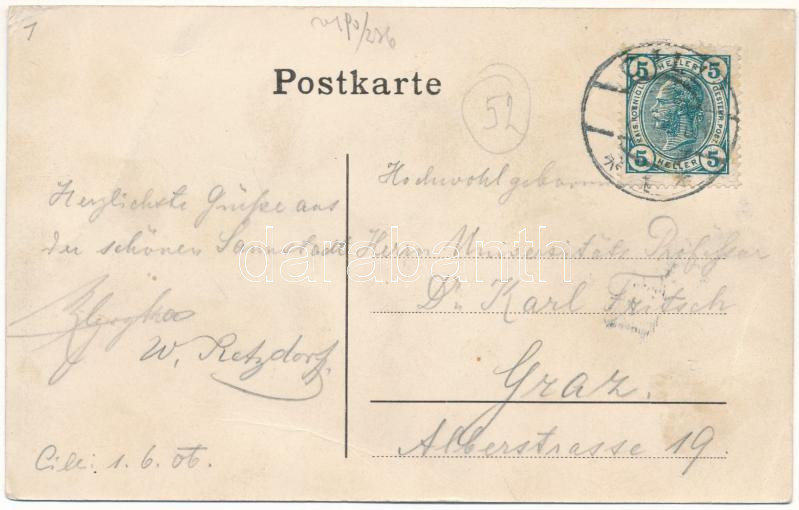 1
Postkarte
52
5 HELLER 5
KAIS. KOENIGL. OESTERR. POST
5 HELLER 5
Herzlichste Grüße aus
der schönen Sannstadt
W. Retzdorff
Cilli 1.6.06.
Hochwohlgeboren
Herrn Universitäts Professor
Dr. Karl Fritsch
Graz.
Alberstrasse 19.
darabanth